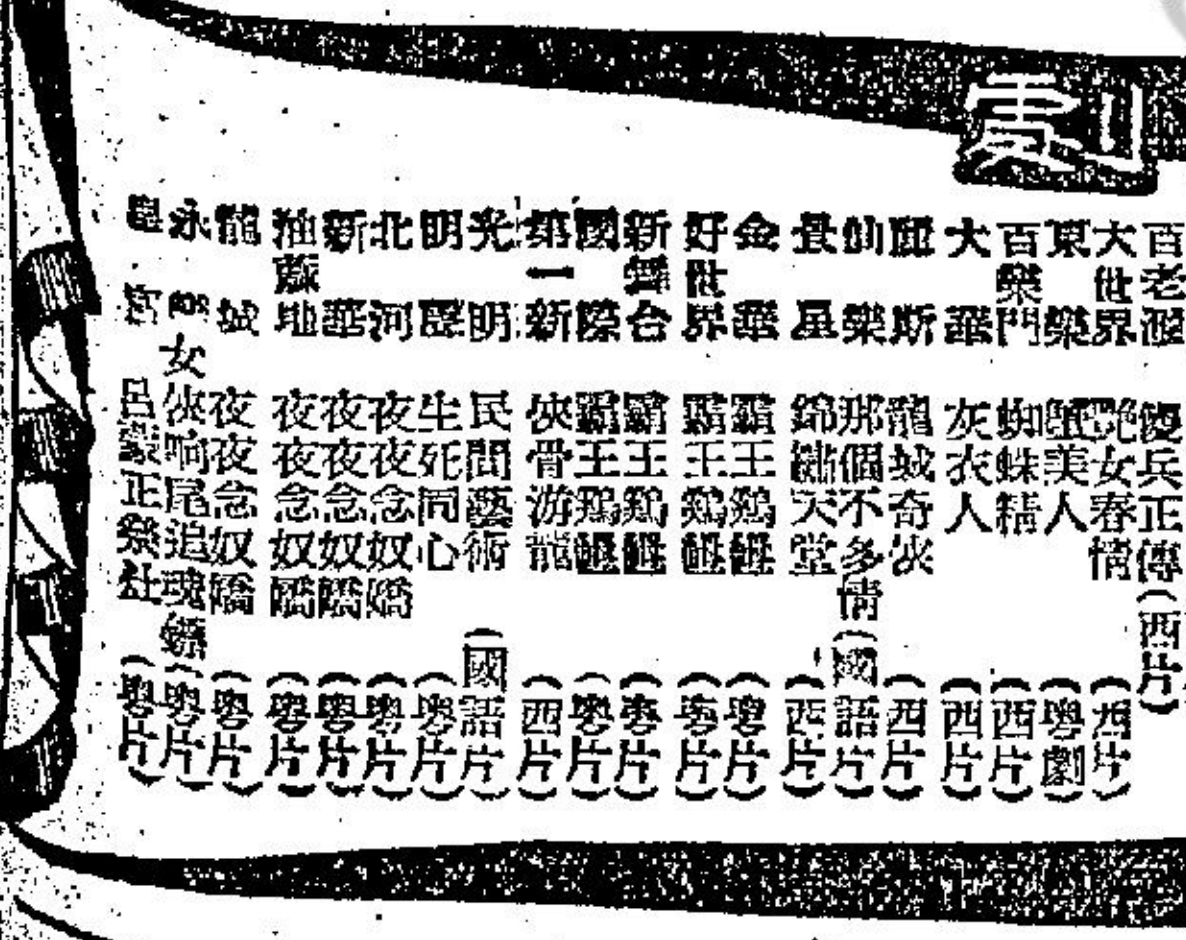 百老滙 傻兵正傳(西片)
大世界 艷女春情(西片)
東樂 墮美人(粵劇)
百樂門 蜘蛛精(西片)
大華 灰衣人(西片)
麗斯 龍城奇俠(西片)
仙樂 那個不多情(國語片)
景星 錦繡天堂(西片)
金華 霸王鷄乸(粵片)
好世界 霸王鷄乸(粵片)
新舞台 霸王鷄乸(粵片)
國際 霸王鷄乸(粵片)
第一新 俠骨游龍(西片)
光明 民間藝術(國語片)
明聲 生死同心(粵片)
北河 夜夜念奴嬌(粵片)
新華 夜夜念奴嬌(粵片)
油蔴地 夜夜念奴嬌(粵片)
龍城 夜夜念奴嬌(粵片)
永 女俠响尾追魂鏢(粵片)
宮 呂蒙正祭灶(粵片)